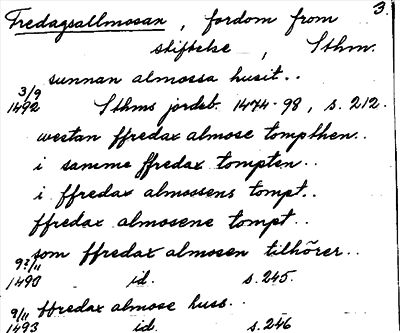 Fredagsallmosan, fordom from 3.
stiftelse, Sthm.
sunnan almossa husit..
3/9
1492 Sthms jordeb. 1474-98, s. 212.
westan ffredax almose tompthen..
i samme ffredax tompten..
i ffredax almossens tompt..
ffredax almosene tompt..
som ffredax almosen tilhörer..
1490 id. s. 245.
9/11 ffredax almose huss..
1493 id. s. 246